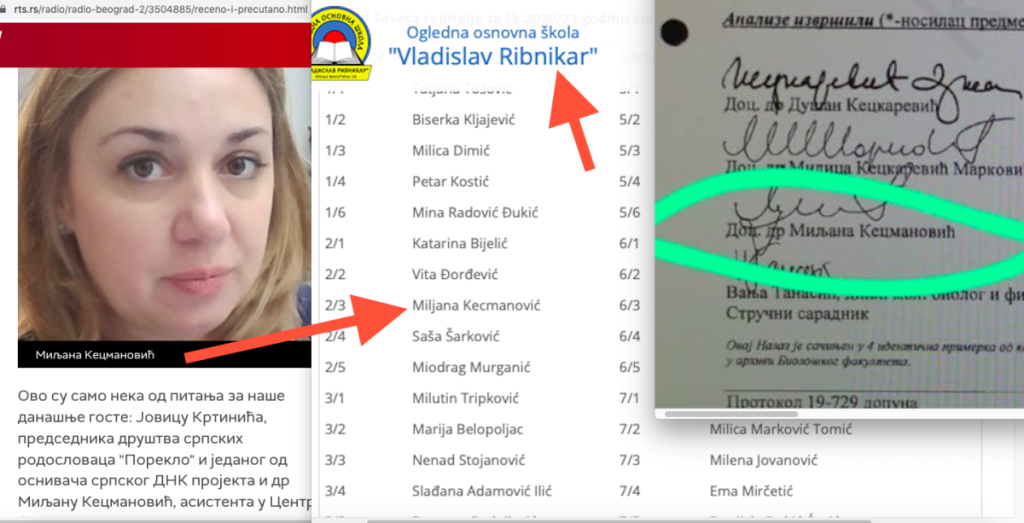 rts.rs/radio/radio-beograd-2/3504885/receno-i-precutano.html
Миљана Кецмановић
Ово су само нека од питања за наше
данашње госте: Јовицу Кртинића,
председника друштва српских
родословаца "Порекло" и једаног од
оснивача српског ДНК пројекта и др
Миљану Кецмановић, асистента у Центр
Saveta roditelja za šk.2020/21 godinu
ОСНОВНА ШКОЛА
Ogledna osnovna škola
"Vladislav Ribnikar"
1/2 Biserka Kljajević 5/2
1/3 Milica Dimić 5/3
1/4 Petar Kostić 5/4
1/6 Mina Radović Đukić 5/6
2/1 Katarina Bijelić 6/1
2/2 Vita Đorđević 6/2
2/3 Miljana Kecmanović 6/3
2/4 Saša Šarković 6/4
2/5 Miodrag Murganić 6/5
3/1 Milutin Tripković 7/1
3/2 Marija Belopoljac 7/2 Milica Marković Tomić
3/3 Nenad Stojanović 7/3 Milena Jovanović
3/4 Slađana Adamović Ilić 7/4 Ema Mirčetić
Анализе извршили (*-носилац предме
Доц. др Душан Кецкаревић
Доц. др Милица Кецкаревић Маркови
Доц. др Миљана Кецмановић
Вања Танасић, биолог и фи
Стручни сарадник
Овај Налаз је сачињен у 4 идентична примерка од к
у архиви Биолошког факултета.
Протокол 19-729 допуна